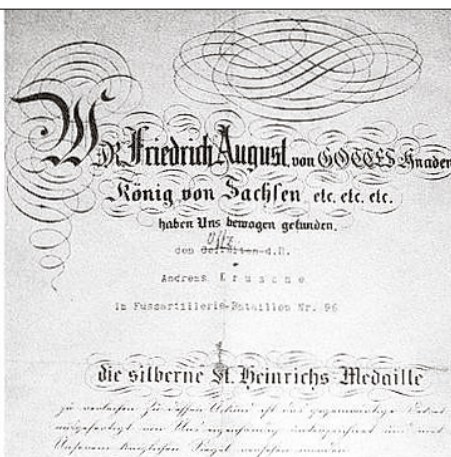 WIR Friedrich August von GOTTES Gnaden
König von Sachsen etc. etc. etc.
haben Uns bewogen gefunden,
Uffz
dem Gefreiten d.R.
Andreas Krusche
im Fussartillerie-Bataillon Nr. 96
die silberne St. Heinrichs-Medaille
zu verleihen. Zu dessen Urkund ist das gegenwärtige Dekret
ausgefertigt von Uns eigenhändig unterzeichnet und mit
Unserem Königlichen Siegel versehen worden.